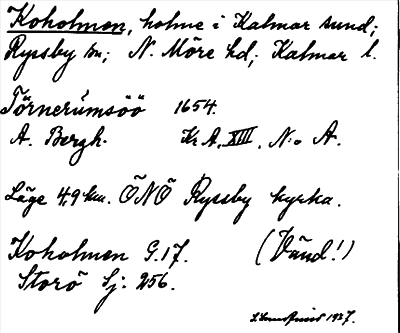 Koholmen, holme i Kalmar sund;
Ryssby sn; N. Möre hd; Kalmar l.
Törnerumsöö 1654.
A. Bergh. Kr. A, XIII, N:o A.
Läge 4,9 km. ÖNÖ Ryssby kyrka.
Koholmen G.17. (Vänd!)
Storö Sj: 256.
1927.